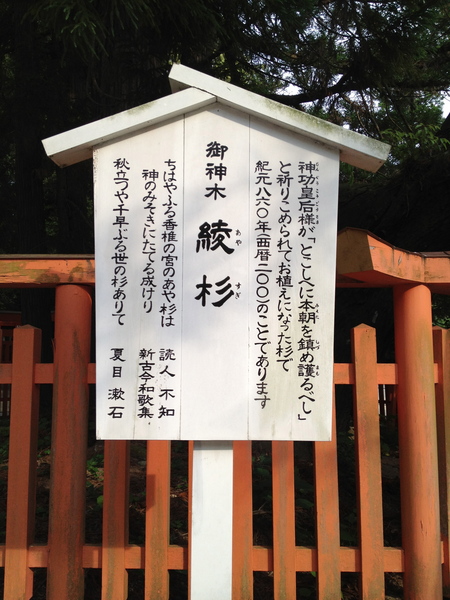 神功皇后様が「とこしへに本朝を鎮め護るべし」
と祈りこめられてお植えになった杉で
紀元八六〇年(西暦二〇〇)のことであります
御神木 綾杉
あや すぎ
ちはやふる香椎の宮のあや杉は
神のみそきにたてる成けり
読人不知
新古今和歌集
秋立つや千早ぶる世の杉ありて
夏目漱石